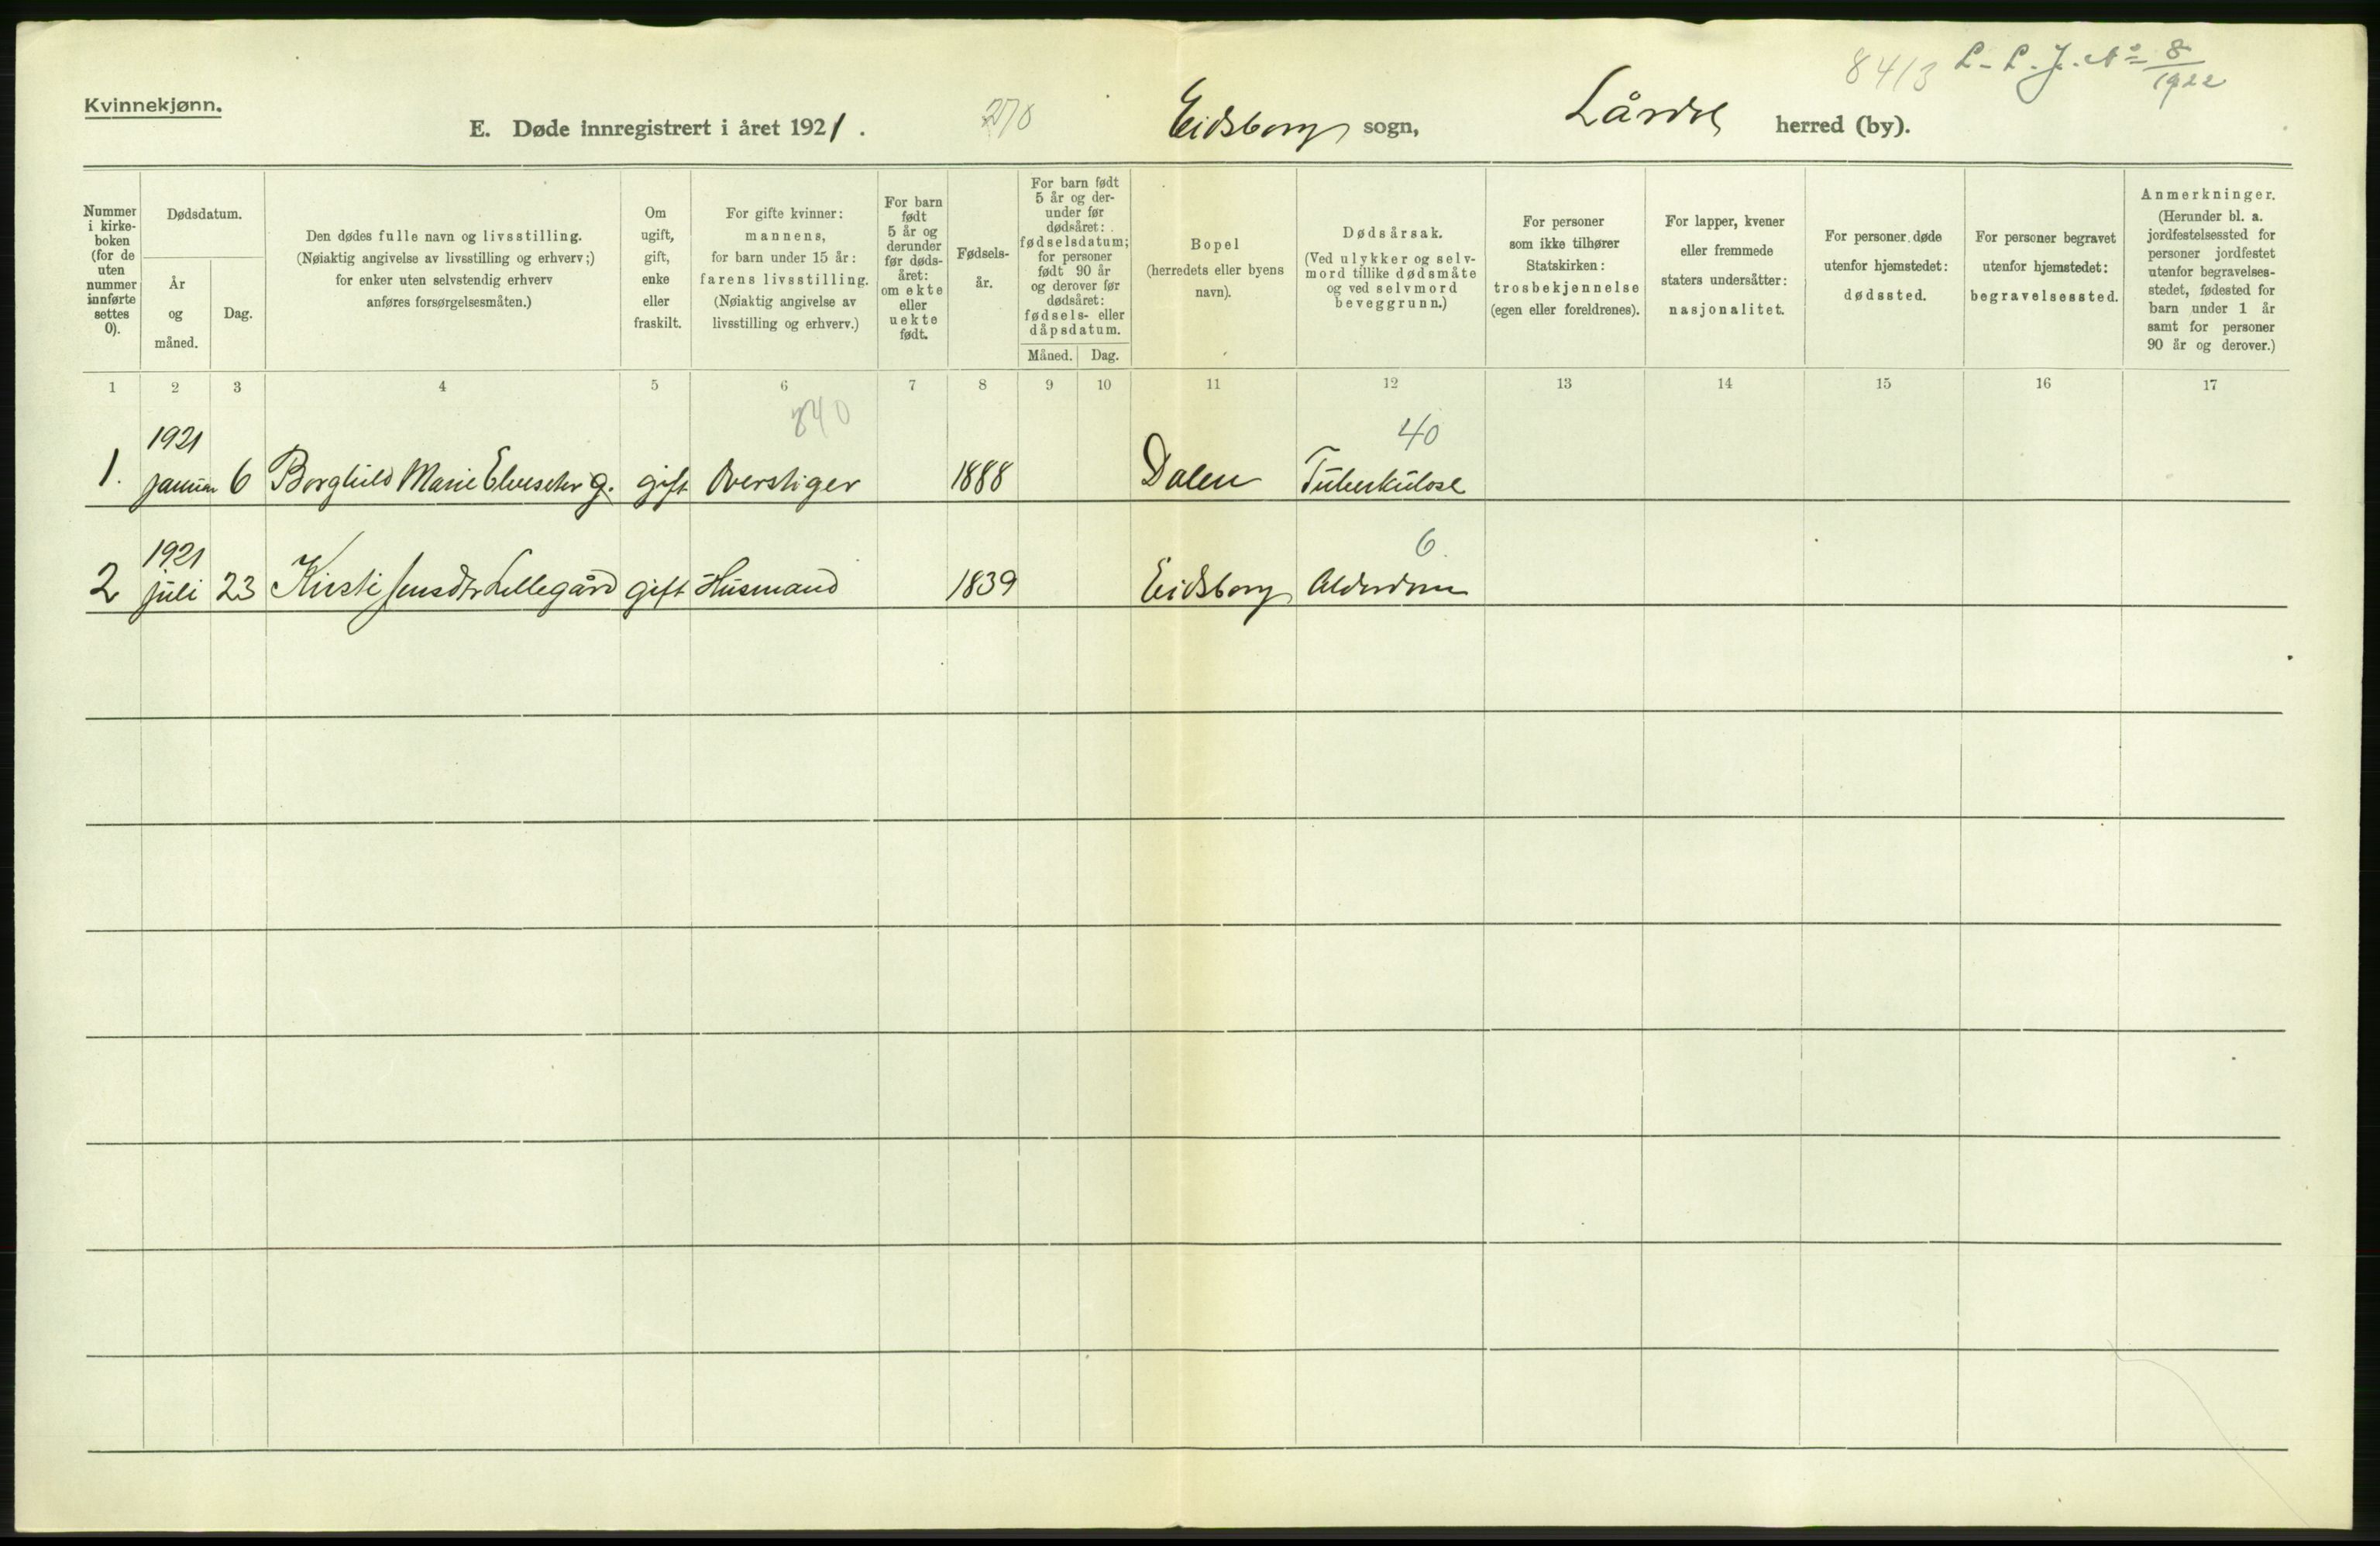 Kvinnekjønn.
E. Døde innregistrert i året 1921.
270
Eidsborg sogn,
Lårdal herred (by).
8413
L. L. J. No 8/1922
Nummer i kirkeboken (for de uten nummer innførte settes 0).
Dødsdatum.
År og måned.
Dag.
Den dødes fulle navn og livsstilling.
(Nøiaktig angivelse av livsstilling og erhverv;)
for enker uten selvstendig erhverv
anføres forsørgelsesmåten.)
Om ugift, gift, enke eller fraskilt.
For gifte kvinner:
mannens,
for barn under 15 år:
farens livsstilling.
(Nøiaktig angivelse av
livsstilling og erhverv.)
For barn født 5 år og derunder før dødsåret: om ekte eller uekte født.
Fødselsår.
For barn født 5 år og derunder før dødsåret: fødselsdatum; for personer født 90 år og derover før dødsåret: fødsels- eller dåpsdatum.
Måned. Dag.
Bopel
(herredets eller byens
navn).
Dødsårsak.
(Ved ulykker og selvmord tillike dødsmåte og ved selvmord beveggrunn.)
For personer
som ikke tilhører
Statskirken:
trosbekjennelse
(egen eller foreldrenes).
For lapper, kvener
eller fremmede
staters undersåtter:
nasjonalitet.
For personer døde
utenfor hjemstedet:
dødssted.
For personer begravet
utenfor hjemstedet:
begravelsessted.
Anmerkninger.
(Herunder bl. a.
jordfestelsessted for
personer jordfestet
utenfor begravelsesstedet, fødested for
barn under 1 år
samt for personer
90 år og derover.)
1 2 3 4 5 6 7 8 9 10 11 12 13 14 15 16 17
1921 840 40
1. januar 6 Borghild Marie g. gift Overstiger 1888 Dalen Tuberkulose
1921 6
2 juli 23 Kirsti Jensdtr Lillegård gift Husmand 1839 Eidsborg Alderdom